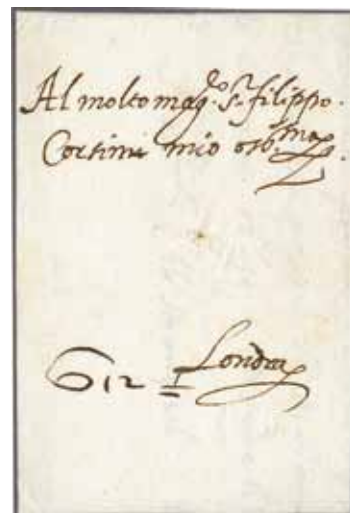 Al molto mag.co S.r filippo.
Corsini mio oss.mo
Londra